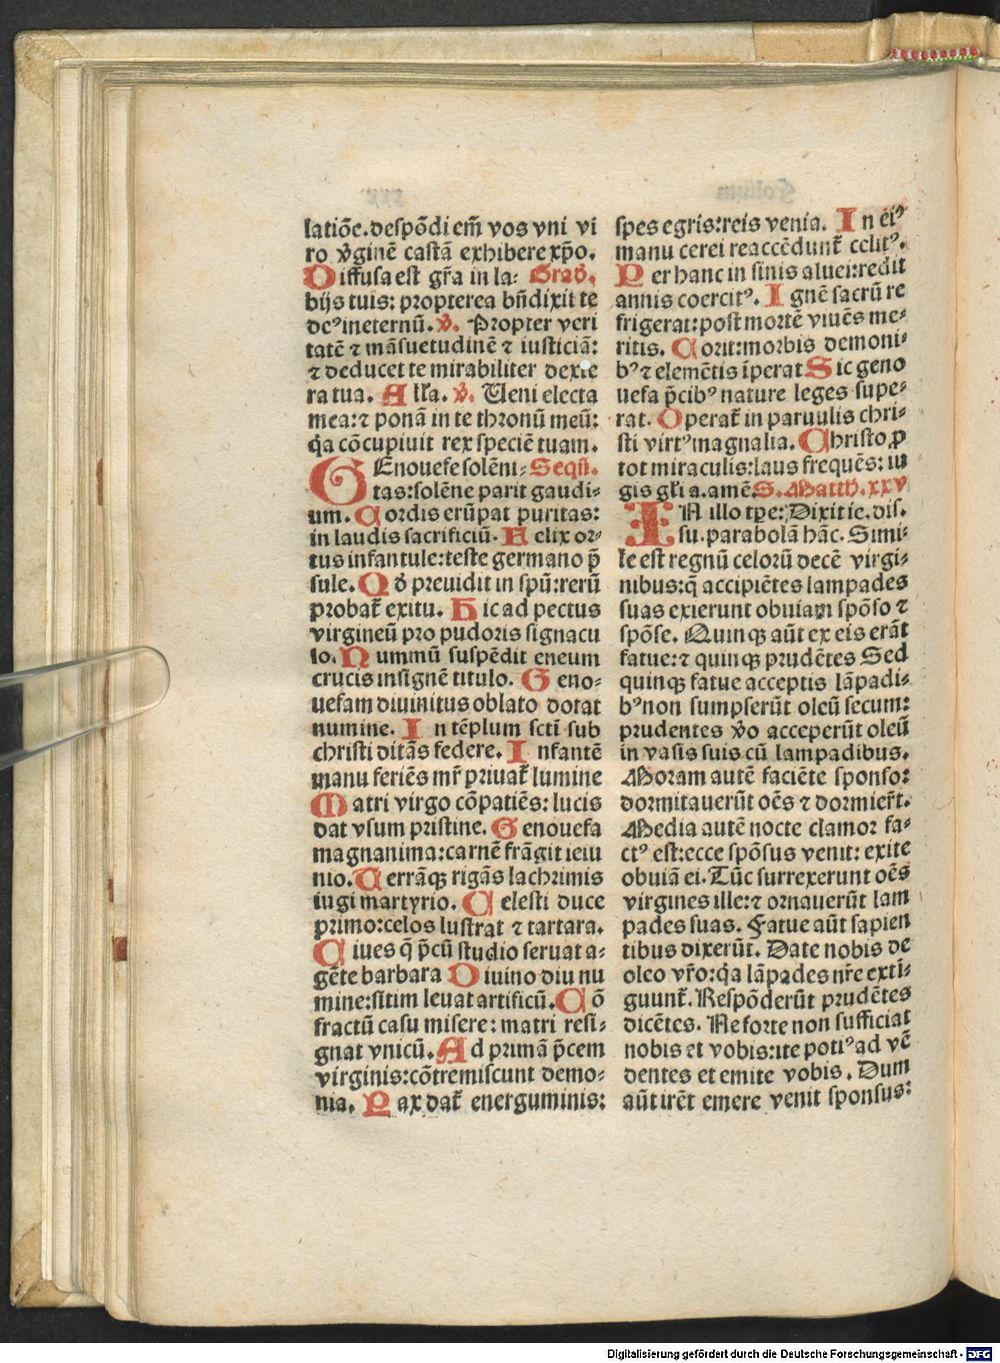 latiōe.despōdi em̄ vos vni vi
ro v̓ginē castā exhibere xp̄o.
Diffusa est gr̄a in la- Grad̓.
bijs tuis: propterea bn̄dixit te
deꝰ ineternū. v̓. Propter veri
tatē ⁊ māsuetudinē ⁊ iusticiā:
⁊ deducet te mirabiliter dexte
ra tua. All̄a. v̓. Veni electa
mea:⁊ ponā in te thronū meū:
q̄a cōcupiuit rex speciē tuam.
GEnouefe solēni- Seqn̄.
tas:solēne parit gaudi-
um. Cordis erūpat puritas:
in laudis sacrificiū. Felix or-
tus infantule:teste germano p̄
sule. Qd̓ preuidit in spū:rerū
probat̄ exitu. Hic ad pectus
virgineū pro pudoris signacu
lo. Nummū suspēdit eneum
crucis insignē titulo. Geno-
uefam diuinitus oblato dotat
numine. In tēplum scti sub
christi ditās federe. Infantē
manu feriēs mr̄ priuat̄ lumine
Matri virgo cōpatiēs: lucis
dat vsum pristine. Genouefa
magnanima:carnē frāgit ieiu
nio. Terrāqꝫ rigās lachrimis
iugi martyrio. Celesti duce
primo:celos lustrat ⁊ tartara.
Ciues q̄ p̄cū studio seruat a-
gēte barbara Diuino diu nu
mine:sitim leuat artificū. Cō
fractū casu misere: matri resi-
gnat vnicū. Ad primā p̄cem
virginis:cōtremiscunt demo-
nia. Pax dat̄ energuminis:
spes egris:reis venia. In eiꝰ
manu cerei reaccēdunt̄ celitꝰ.
Per hanc in sinis aluei:redit
annis coercitꝰ. Ignē sacrū re
frigerat:post mortē viuēs me-
ritis. Corit:morbis demoni-
bꝰ ⁊ elemētis īperat Sic geno
uefa p̄cibꝰ nature leges supe-
rat. Operat̄ in paruulis chri-
sti virtꝰ magnalia. Christo ꝑ
tot miraculis:laus frequēs: iu
gis gl̄ia.amē. S. Matth. xxv
IN illo tp̄e: Dixit ie. dis.
su. parabolā hāc. Simi-
le est regnū celorū decē virgi-
nibus:q̄ accipiētes lampades
suas exierunt obuiam spōso ⁊
spōse. Quinqꝫ aūt ex eis erāt
fatue:⁊ quinqꝫ prudētes Sed
quinqꝫ fatue acceptis lāpadi-
bꝰ non sumpserūt oleū secum:
prudentes v̓o acceperūt oleū
in vasis suis cū lampadibus.
Moram autē faciēte sponso:
dormitauerūt oēs ⁊ dormier̄t.
Media autē nocte clamor fa-
ctꝰ est:ecce spōsus venit: exite
obuiā ei. Tūc surrexerunt oēs
virgines ille:⁊ ornauerūt lam
pades suas. Fatue aūt sapien
tibus dixerūt. Date nobis de
oleo vr̄o:q̄a lāpades nr̄e exti-
guunt̄. Respōderūt prudētes
dicētes. Ne forte non sufficiat
nobis et vobis:ite potiꝰ ad vē
dentes et emite vobis. Dum
aūt irēt emere venit sponsus:
Digitalisierung gefördert durch die Deutsche Forschungsgemeinschaft - DFG